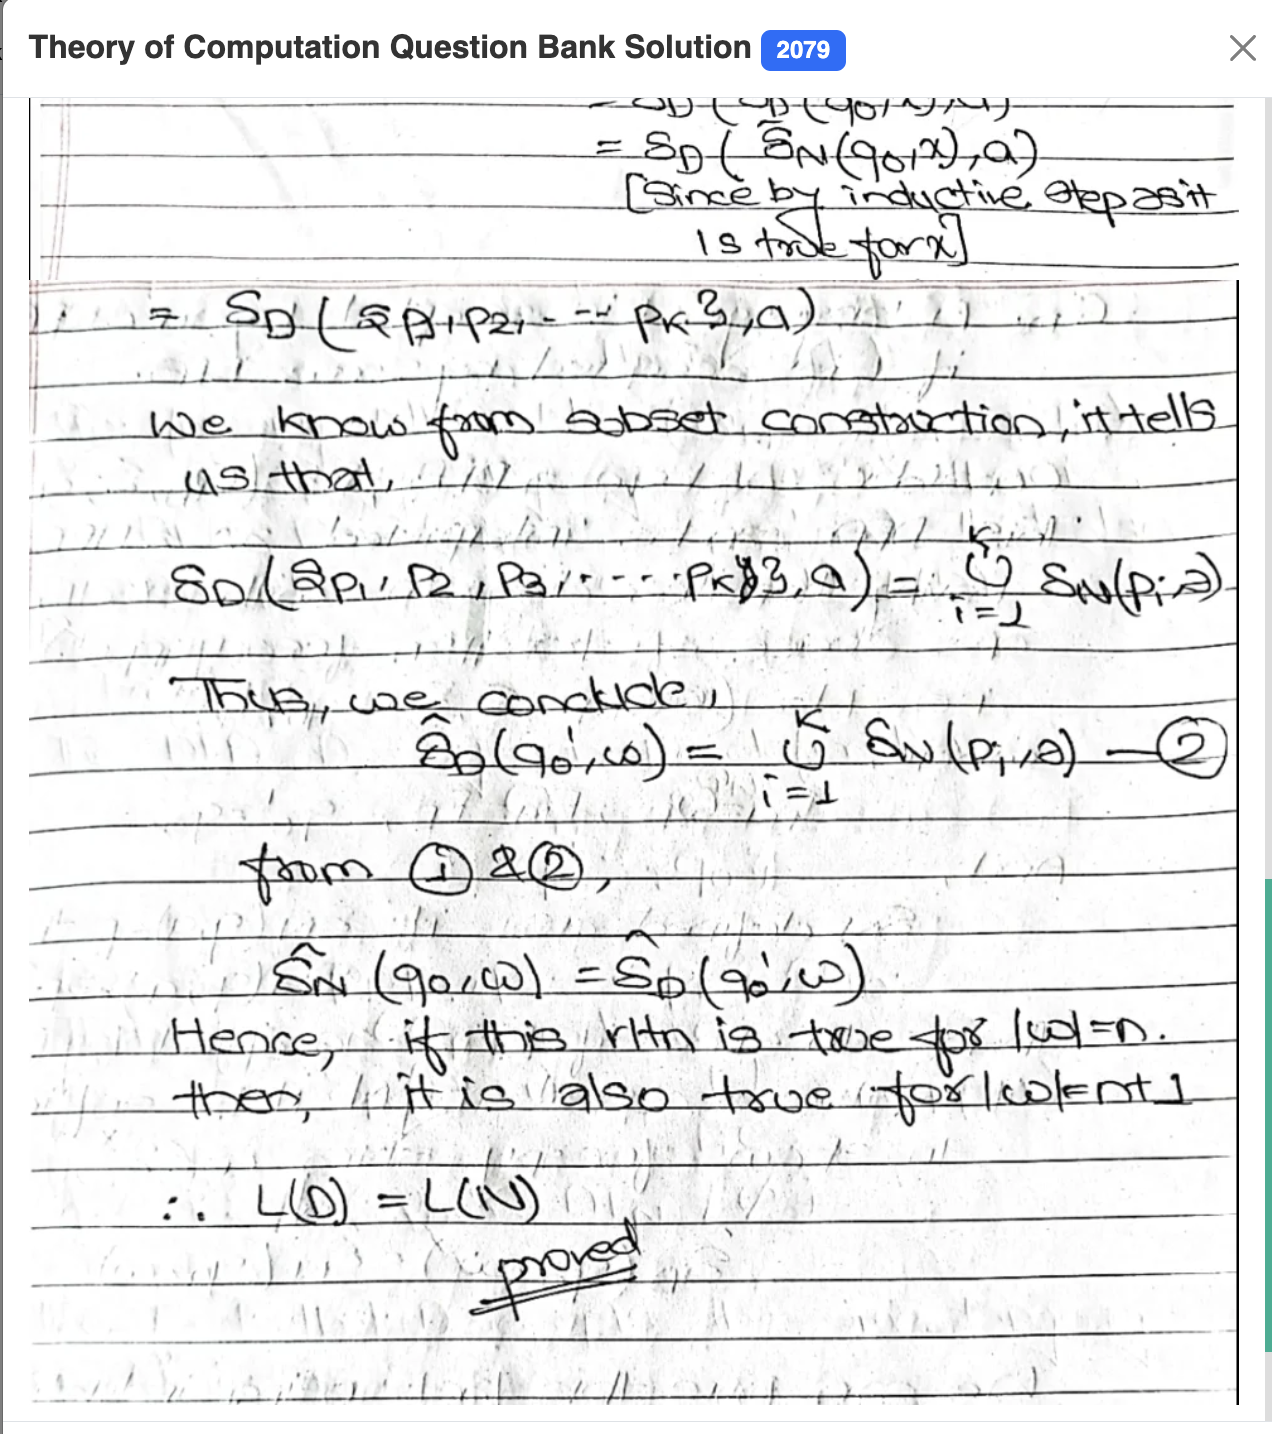 Theory of Computation Question Bank Solution 2079
= δD( δ̂N(q0,x),a)
[Since by inductive step as it
is true for x]
= δD({p1,p2,---- pk},a)
We know from subset construction, it tells
us that,
δD({p1, p2, p3, ---- pk},a) = k∪i=1 δN(pi,a)
Thus, we conclude,
δ̂D(q0',ω) = k∪i=1 δN(pi,a) — ②
from ① & ②,
δ̂N (q0,ω) = δ̂D(q0',ω)
Hence, if this rltn is true for |ω|=n.
then, it is also true for |ω|=n+1
∴ L(D) = L(N)
proved